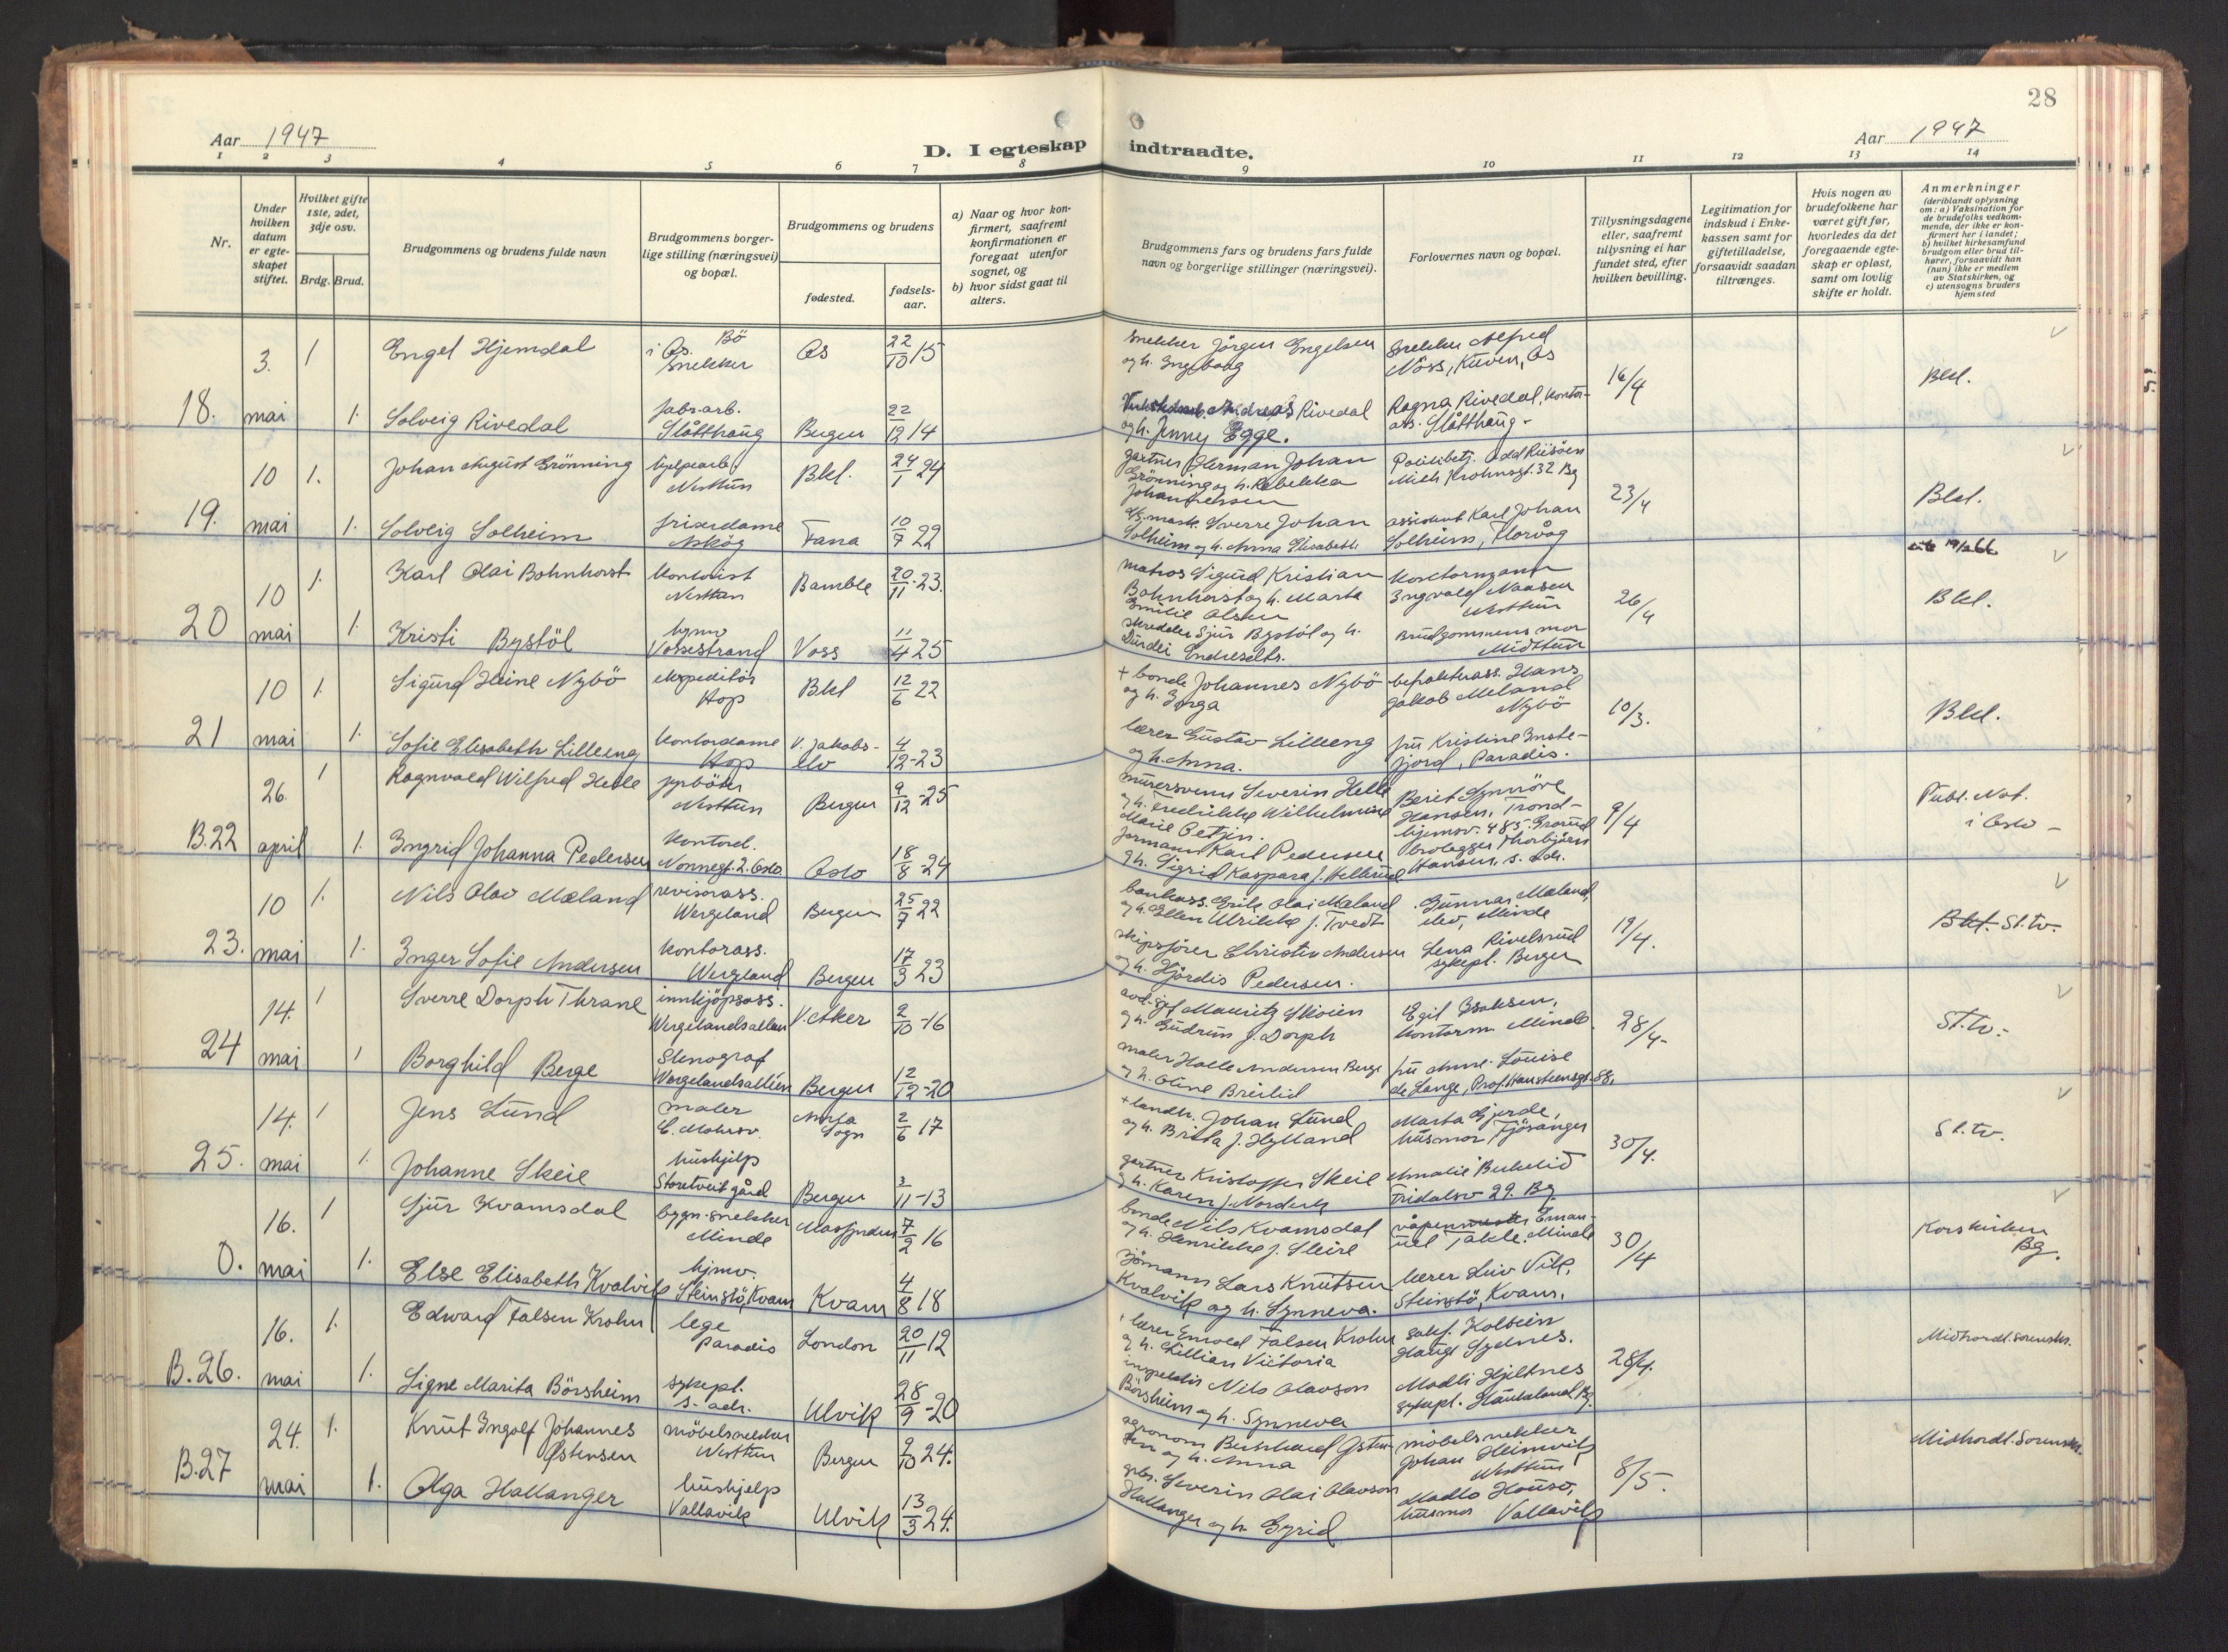 28
Aar 1947
D. I egteskap
indtraadte.
Aar 1947
1 2 3 4 5 6 7 8 9 10 11 12 13 14
Nr.
Under hvilken datum er egteskapet stiftet.
Hvilket gifte 1ste, 2det, 3dje osv.
Brdg. Brud.
Brudgommens og brudens fulde navn
Brudgommens borgerlige stilling (næringsvei) og bopæl.
Brudgommens og brudens
fødested.
fødselsaar.
a) Naar og hvor konfirmert, saafremt konfirmationen er foregaat utenfor sognet, og
b) hvor sidst gaat til alters.
Brudgommens fars og brudens fars fulde navn og borgerlige stillinger (næringsvei).
Forlovernes navn og bopæl.
Tillysningsdagene eller, saafremt tillysning ei har fundet sted, efter hvilken bevilling.
Legitimation for indskud i Enkekassen samt for giftetilladelse, forsaavidt saadan tiltrænges.
Hvis nogen av brudefolkene har været gift før, hvorledes da det foregaaende egteskap er opløst, samt om lovlig skifte er holdt.
Anmerkninger (deriblandt oplysning om: a) Vaksination for de brudefolks vedkommende, der ikke er konfirmert her i landet; b) hvilket kirkesamfund brudgom eller brud tilhører, forsaavidt han (hun) ikke er medlem av Statskirken, og c) utensogns bruders hjemsted
3. 1 Engel Hjemdal i Os. Bö snekker Os 22/10 15 snekker Jörgen Engelsen og h. Ingeborg snekker Alfred Nöss, Kuven, Os
18. mai 1. Solveig Rivedal fabr.arb. Slåtthaug Bergen 22/12 14 Andreas Rivedal og h. Jenny Egge. Ragna Rivedal, kontorass. Slåtthaug 16/4 Bkl.
10 1. Johan August Grönning hjelpearb. Nesttun Bkl. 24/1 24 gartner Herman Johan Grönning og h. Rebekka Johannessen Politibetj. Odd Riisöen Mich Krohnsgt. 32 Bg
19. mai 1. Solveig Solheim friserdame Askög Fana 10/7 22 Sverre Johan Solheim og h. Anna Elisabeth assistent Karl Johan Solheim, Florvåg 23/4 Bkl.
10 1. Karl Olai Bohnhorst Nesttun Bamble 20/11-23. matros Sigurd Kristian Bohnhorst og h. Marta Emilie Olsen kontormann Ingvald Naasen Nesttun
20 mai 1. Kristi Bystöl hjmv Vossestrand Voss 11/4 25 skredder Sjur Bystöl og h. Durdei Endresdtr. Brudgommens mor Midttun 26/4 Bkl.
10 1. Sigurd Heine Nybö ekspeditör Hop Bkl 12/6 22 + bonde Johannes Nybö og h. Inga Hans Jakob Meland Nybö
21 mai 1. Sofie Elisabeth Lilleeng kontordame Hop V. Jakobselv 4/12-23 lærer Gustav Lilleeng og h. Anna. fru Kristine Instefjord, Paradis. 10/3. Bkl.
26. 1 Ragnvald Wilfred Helle fyrböter Nesttun Bergen 9/12-25 murersvenn Severin Helle og h. Fredrikke Wilhelmine Marie Berit Synnöve Hansen, Trondhjemsv. 485. Grorud
B.22 april 1. Ingrid Johanna Pedersen kontord. Nonnegt. 2. Oslo. Oslo 18/8-24 formann Karl Pedersen og h. Sigrid Kaspara f. Hellerud brolegger Thorbjörn Hansen, s. adr. 9/4 Publ. Not. i Oslo -
10 1. Nils Olav Mæland revisorass. Wergeland Bergen 25/7 22 bankass. Erik Olai Mæland og h. Ellen Ulrikke f. Tvedt Gunnar Mæland, elev, Minde
23. mai 1. Inger Sofie Andersen kontorass. Wergeland Bergen 17/3 23 skipsförer Christen Andersen og h. Hjördis Pedersen. Lena Rivelsrud sykepl. Bergen 19/4. Bkl. St.tv.
14. 1 Sverre Dorph Thrane innkjöpsass. Wergelandsalleen V. Aker 2/10-16 Mauritz Skoien og h. Gudrun f. Dorph Egil Isaksen, kontorm Minde
24 mai 1 Borghild Berge Stenograf Wergelandsalléen Bergen 12/12-20 maler Halle Andersen Berge og h. Oline Breilid fru Anne-Louise de Lange, Prof. Hansteensgt. 88. 28/4- St.tv.-
14. 1 Jens Lund maler C. Mohrsv. Sogn 2/6 17 + landh. Johan Lund og h. Brita f. Hylland Marta Gjerde, husmor, Fjösanger
25. mai 1. Johanne Skeie hushjelp Storetveit gård Bergen 3/11-13 gartner Kristoffer Skeie og h. Karen f. Nordvik Amalie Birkelid Fridalsv 29. Bg. 30/4. St.tv.
16. 1 Sjur Kvamsdal bygn.snekker Minde Masfjorden 7/2 16 bonde Nils Kvamsdal og h. Henrikke f. Steire våpenmester Emanuel Takle. Minde
0. mai 1. Else Elisabeth Kvalvik hjmv. Steinstö, Kvam Kvam 4/8 18 Sjömann Lars Knutsen Kvalvik og h. Synneva. lærer Liv Vik, Steinstö, Kvam. 30/4 Korskirken Bg.
16. 1. Edward Falsen Krohn lege Paradis London 20/11-12 + lærer Enevold Falsen Krohn og h. Lillian Victoria Holbein Haugl Sydnes.
B.26. mai 1. Signe Marita Börsheim sykepl. s. adr. Ulvik 28/9-20 inspektör Nils Olavson Börsheim og h. Synneva Madli Hjeltnes sykepl. Haukeland Bg. 28/4. Midhordl. Sorenskr.
24. 1. Knut Ingolf Johannes Östensen möbelsnekker Nesttun Bergen 9/10 24. agronom Bernhard Östensen og h. Anna möbelsnekker Johan Heimvik Nesttun
B.27 mai 1. Olga Hallanger hushjelp Vallavik Ulvik 13/3 24. gbr. Severin Olai Olavson Hallanger og h. Gyrid Madla Housö, husmor Vallavik 8/5. Midhordl. Sorenskr.